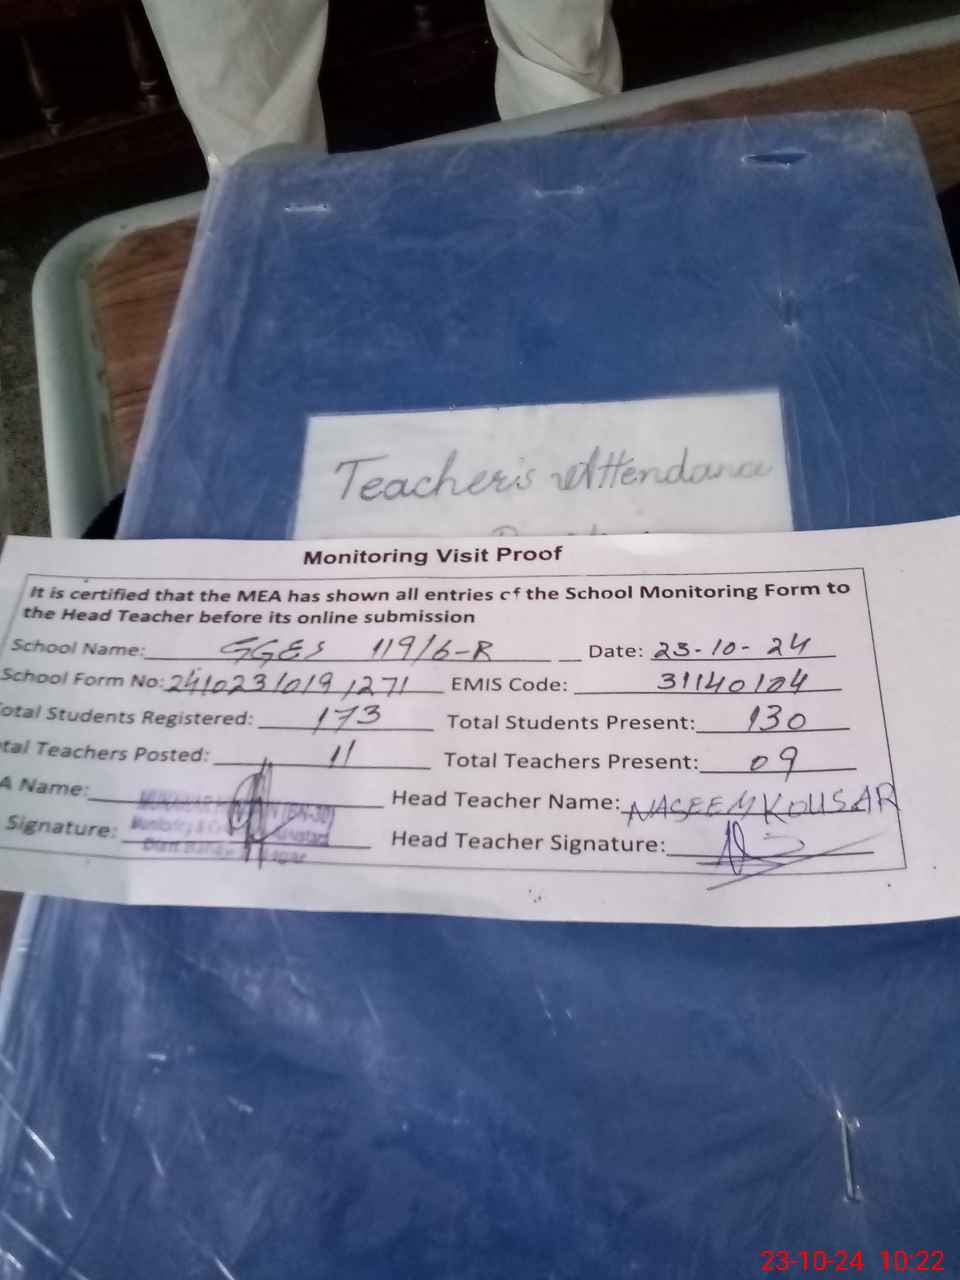 Teacher's Attendance
Monitoring Visit Proof
It is certified that the MEA has shown all entries of the School Monitoring Form to
the Head Teacher before its online submission
School Name: GGES 119/6-R Date: 23-10-24
School Form No: 24102310191271 EMIS Code: 31140104
otal Students Registered: 173 Total Students Present: 130
tal Teachers Posted: 11 Total Teachers Present: 09
A Name: Head Teacher Name: NASEEM KOUSAR
Signature: Head Teacher Signature:
23-10-24 10:22